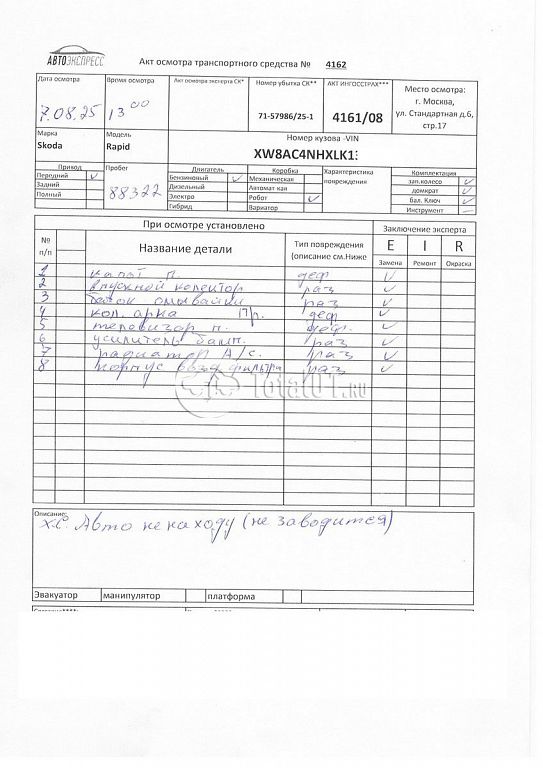 АВТОЭКСПРЕСС
Акт осмотра транспортного средства № 4162
Дата осмотра
7.08.25
Время осмотра
13 00
Акт осмотра эксперта СК*
Номер убытка СК**
71-57986/25-1
АКТ ИНГОССТРАХ***
4161/08
Место осмотра:
г. Москва,
ул. Стандартная д.6,
стр.17
Марка
Skoda
Модель
Rapid
Номер кузова -VIN
XW8AC4NHXLK1
Привод
Передний ✓
Задний
Полный
Пробег
88322
Двигатель
Бензиновый ✓
Дизельный
Электро
Гибрид
Коробка
Механическая
Автомат кая
Робот ✓
Вариатор
Характеристика
повреждения
Комплектация
зап.колесо ✓
домкрат ✓
бал. Ключ ✓
Инструмент —
При осмотре установлено
Заключение эксперта
№ п/п
Название детали
Тип повреждения
(описание см.Ниже
E I R
Замена Ремонт Окраска
1 капот п. деф ✓
2 впускной колектор раз ✓
3 бачок омывайки раз ✓
4 кол. арка п/р. деф ✓
5 телевизор п. деф. ✓
6 усилитель бамп. раз ✓
7 радиатор А/с. раз ✓
8 корпус возд фильтра раз ✓
TotalOT.RU
Описание:
Х.С. Авто не на ходу (не заводится)
Эвакуатор манипулятор платформа